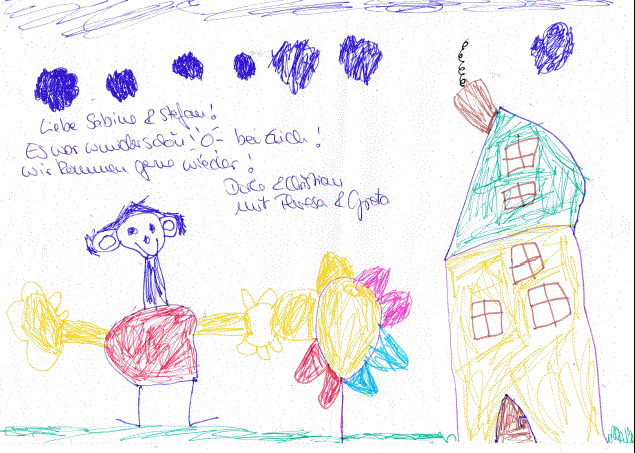 Liebe Sabine & Stefan!
Es war wunderschön bei Euch!
wir kommen gerne wieder!
Dorle & Christian
mit Theresa & Greta